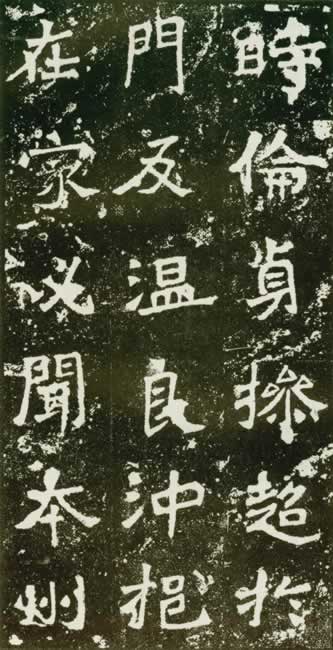 時倫貞操超於
門友温良沖挹
在家必聞本州